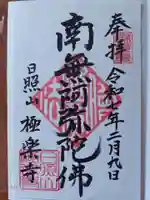 奉拝
令和七年二月九日
南無阿弥陀佛
日照山
極楽寺